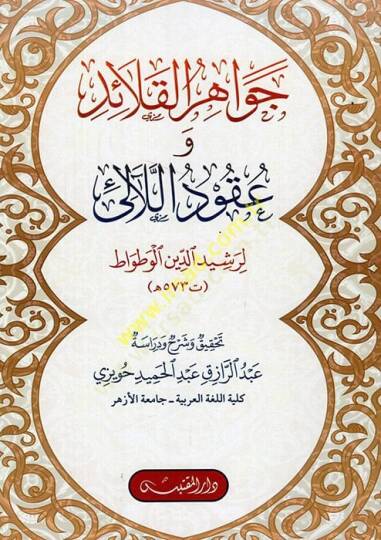 جَوَاهِرُ القَلَائِدِ
وَ
عُقُودُ اللَّآلِئ
لِرَشِيدِ الدِّينِ الْوَطْوَاط
(ت ٥٧٣هـ)
تَحْقِيقٌ وَشَرْحٌ وَدِرَاسَةٌ
عَبْدُ الرَّازِقِ عَبْدِ الْحَمِيدِ حُوَيزِي
كلية اللغة العربية - جامعة الأزهر
دار المقتبس